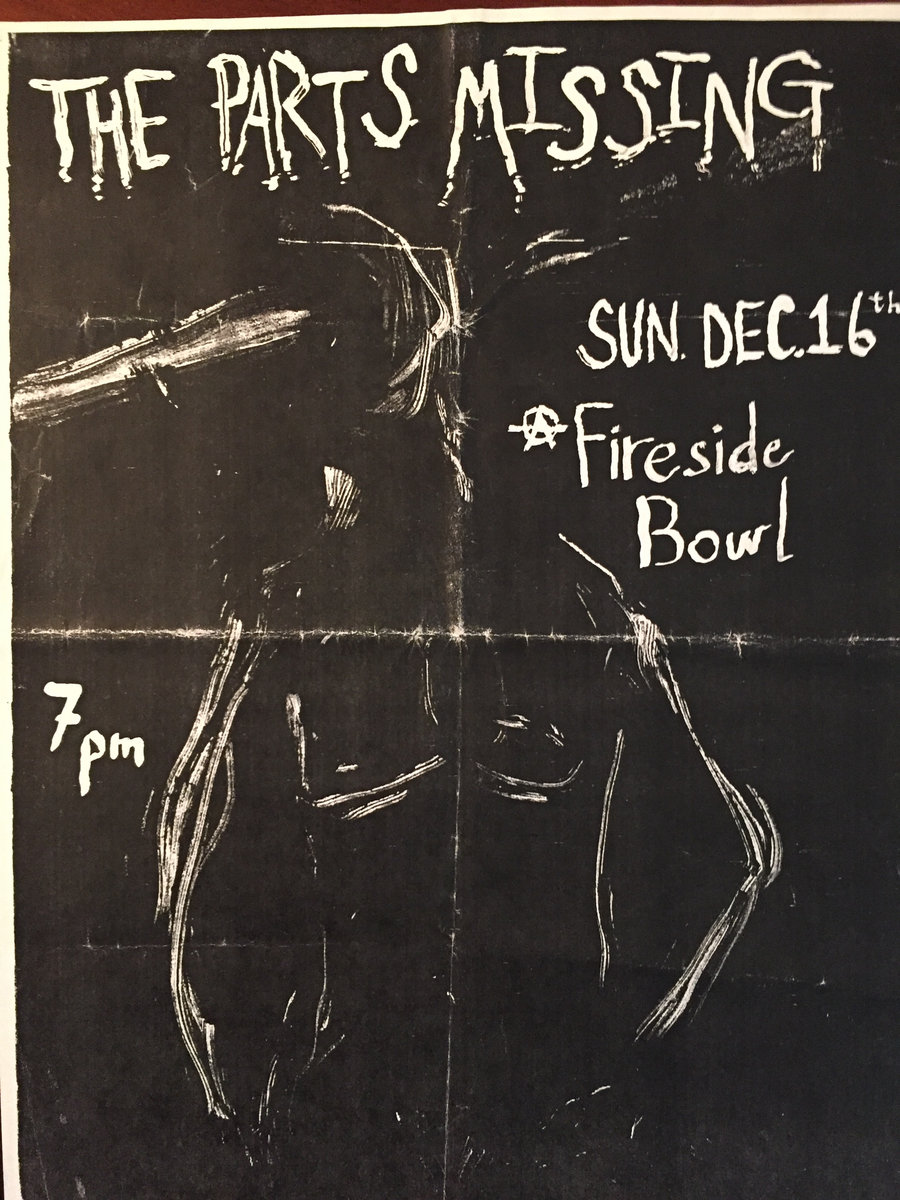 THE PARTS MISSING
SUN. DEC. 16th
@ Fireside
Bowl
7pm